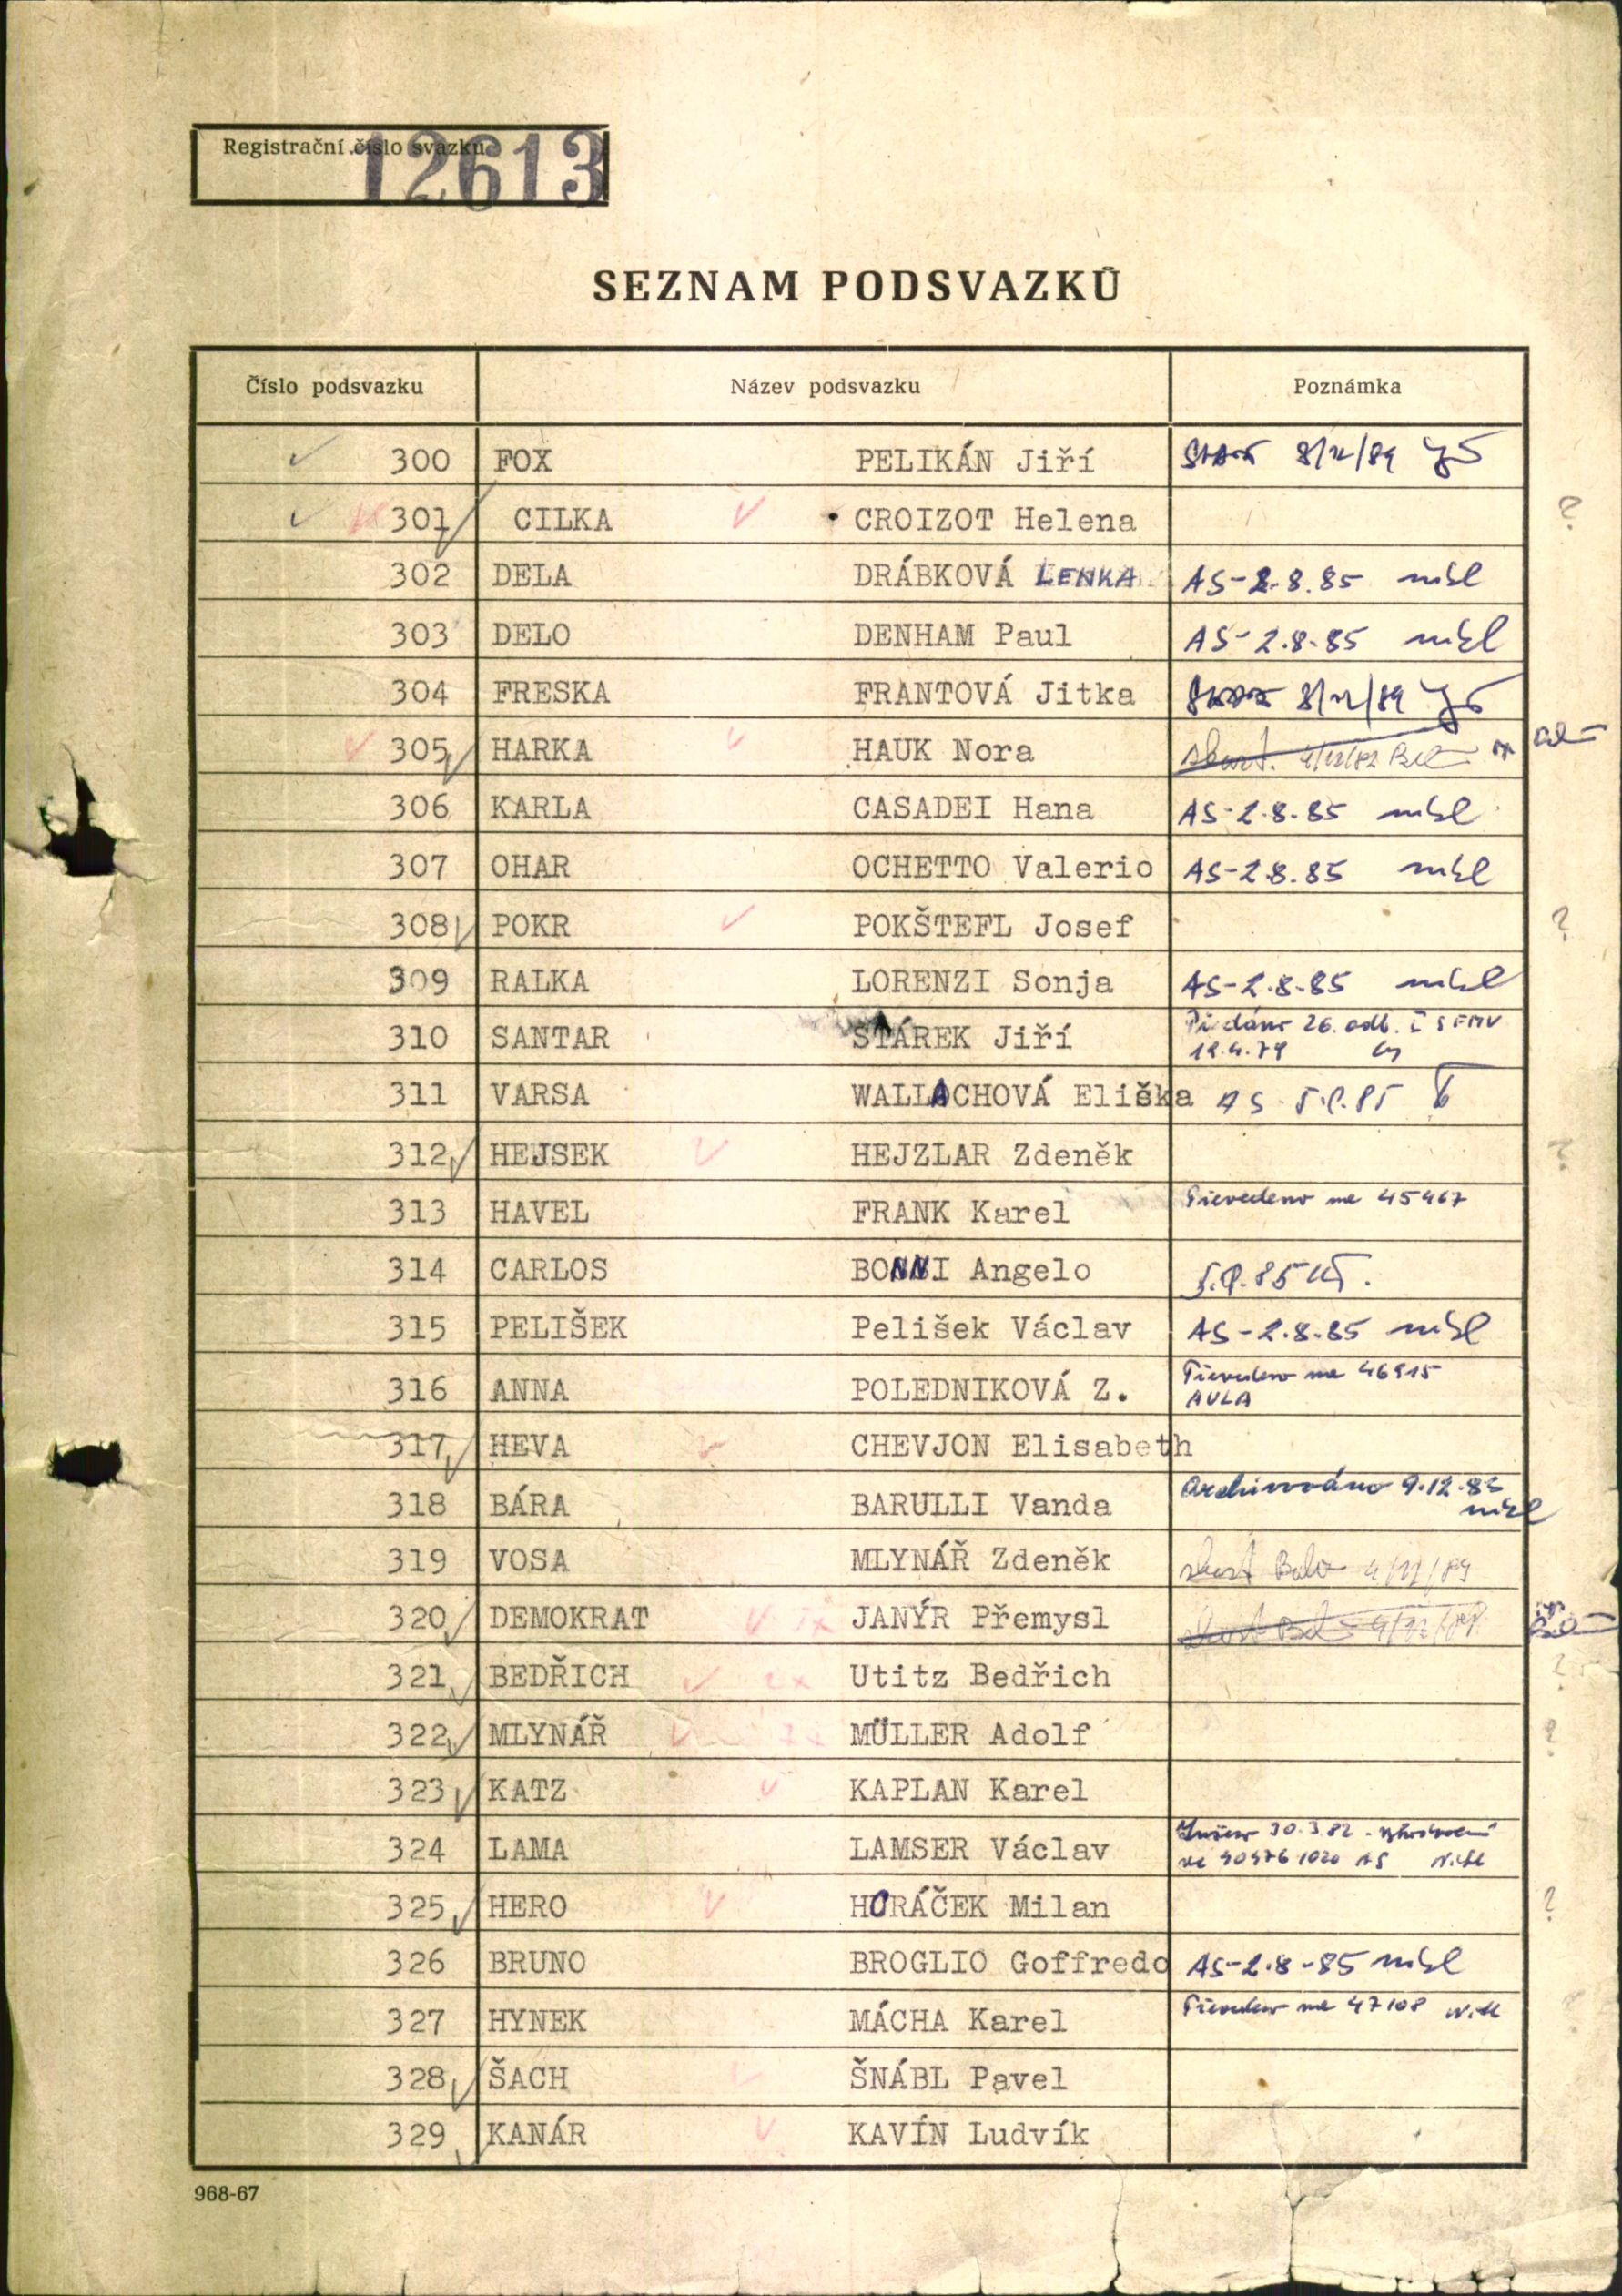 Registrační číslo svazku
12613
SEZNAM PODSVAZKŮ
Číslo podsvazku Název podsvazku Poznámka
300 FOX PELIKÁN Jiří 8/12/89
301 CILKA CROIZOT Helena ?
302 DELA DRÁBKOVÁ LENKA AS-2.8.85
303 DELO DENHAM Paul AS-2.8.85
304 FRESKA FRANTOVÁ Jitka 8/12/89
305 HARKA HAUK Nora
306 KARLA CASADEI Hana AS-2.8.85
307 OHAR OCHETTO Valerio AS-2.8.85
308 POKR POKŠTEFL Josef ?
309 RALKA LORENZI Sonja AS-2.8.85
310 SANTAR STÁREK Jiří Předáno 26. odb. I S FMV
311 VARSA WALLACHOVÁ Eliška AS
312 HEJSEK HEJZLAR Zdeněk ?
313 HAVEL FRANK Karel Převedeno na 45467
314 CARLOS BONNI Angelo
315 PELIŠEK Pelišek Václav AS-2.8.85
316 ANNA POLEDNIKOVÁ Z. Převedeno na 46915
AULA
317 HEVA CHEVJON Elisabeth
318 BÁRA BARULLI Vanda Archivováno
319 VOSA MLYNÁŘ Zdeněk
320 DEMOKRAT JANÝR Přemysl
321 BEDŘICH Utitz Bedřich ?
322 MLYNÁŘ MÜLLER Adolf ?
323 KATZ KAPLAN Karel
324 LAMA LAMSER Václav 30.3.82
325 HERO HORÁČEK Milan ?
326 BRUNO BROGLIO Goffredo AS-2.8-85
327 HYNEK MÁCHA Karel Převeden na 47108
328 ŠACH ŠNÁBL Pavel
329 KANÁR KAVÍN Ludvík
968-67